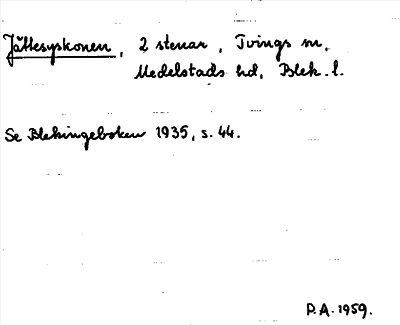 Jättesyskonen, 2 stenar, Tvings sn,
Medelstads hd, Blek. l.
Se Blekingeboken 1935, s. 44.
P.A. 1959.